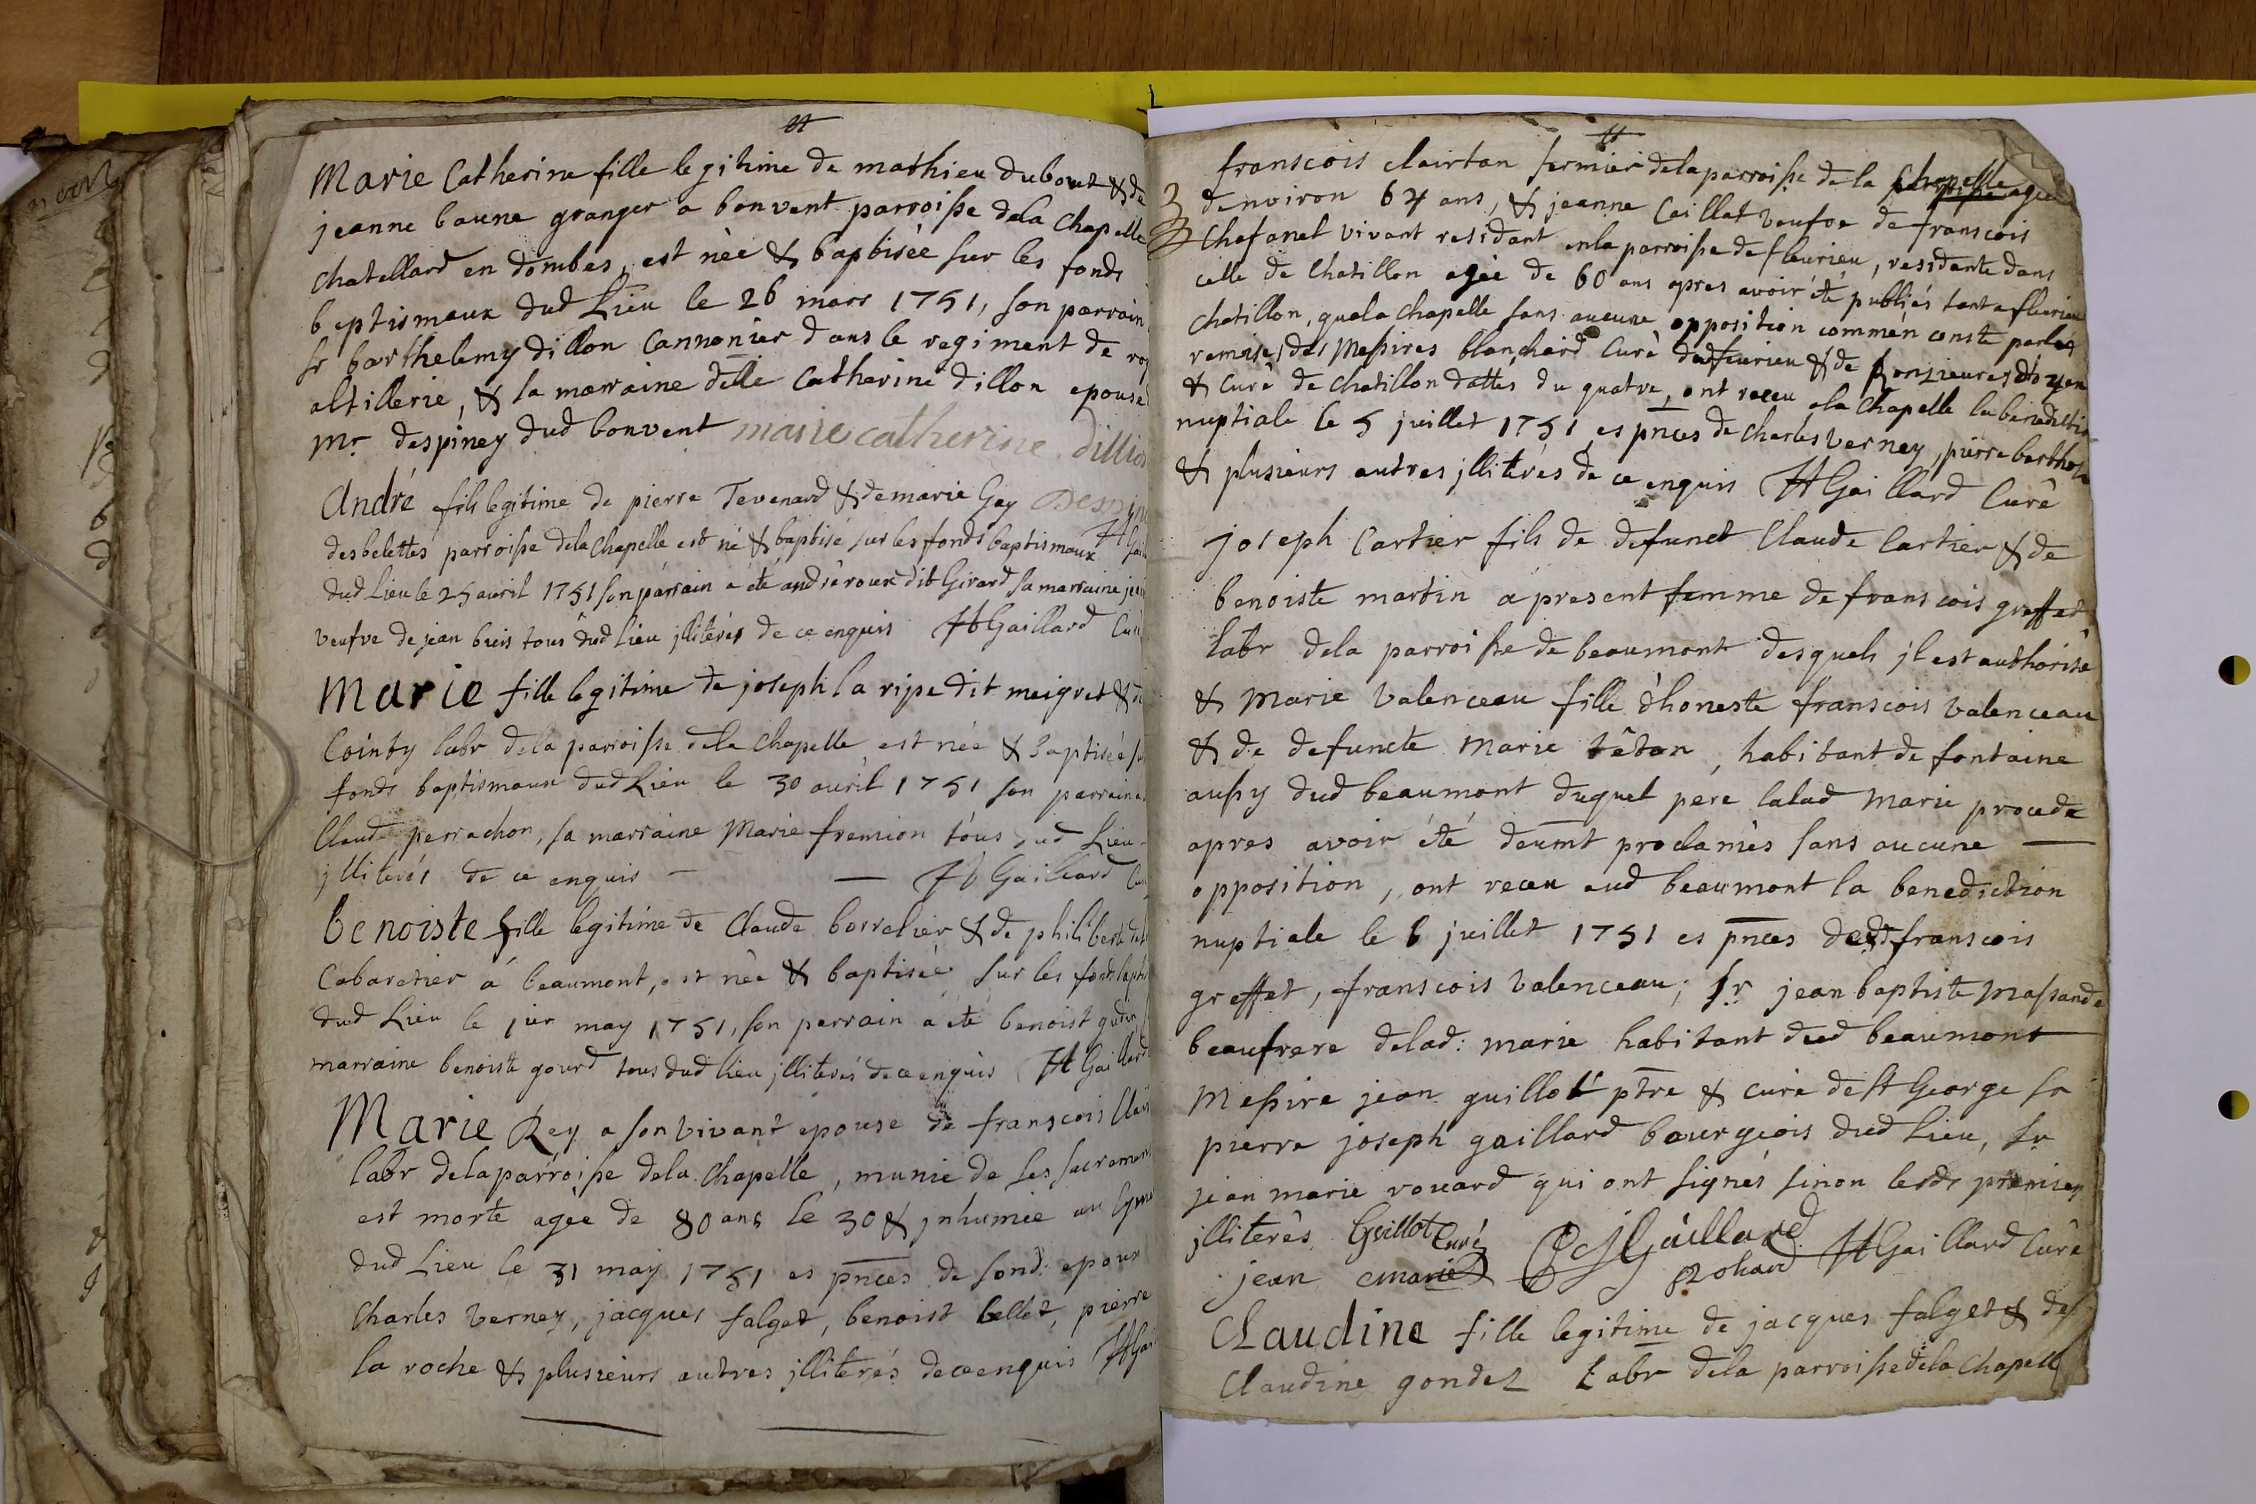 Marie Catherine fille legitime de mathieu dubout & de
jeanne baune granger a bonvent parroisse dela Chapelle
Chatellard en dombes, est née & baptisée sur les fonds
baptismaux dud Lieu le 26 mars 1751, son parrain
sr barthelemy dillon Cannonier dans le regiment de
altillerie, & sa marraine delle Catherine dillon epouse
mr. despiney dud bonvent marie catherine dillion
André fils legitime de pierre Tevenard & de marie Gey
des belettes parroisse dela Chapelle est né & baptisé sur les fonds baptismaux
dud Lieu le 25 avril 1751 son parrain a été andré roux dit Girard sa marraine
veufve de jean buis tous dud lieu jlliterés de ce enquis Gaillard
Marie fille legitime de joseph la ripe dit meigret &
Cointy labr dela parroisse dela Chapelle est née & baptisée
fonds baptismaux dud Lieu le 30 avril 1751 son parrain
Claude perrachon, sa marraine Marie fremion tous dud Lieu
jlliterés de ce enquis — — Gaillard
benoiste fille legitime de Claude borrelier & de philiberte
Cabaretier á beaumont, est née & baptisée sur les fonds
dud Lieu le jer may 1751, son parrain a été benoist
marraine benoiste gourd tous dud lieu jlliterés de ce enquis Gaillard
Marie Rey a son vivant epouse de franscois
labr dela parroisse dela Chapelle, munie de ses sacremen
est morte agée de 80 ans le 30 & jnhumée au
dud Lieu le 31 may 1751 es pnces de sond: epoux
Charles verney, jacques falget, benoist bellet, pierre
la roche & plusieurs autres jlliterés de ce enquis
franscois clairtan fermier dela parroisse de la Chapelle agé
denviron 64 ans, & jeanne Caillat veufve de franscois
Chafanel vivant residant en la parroisse de fleurieu, residante dans
celle de Chatillon agée de 60 ans apres avoir été publiés tant a fleurieu
Chatillon, qua la Chapelle sans aucune opposition comme n conste par les
remises des Messires blanchard Curé dud fleurieu & de
& Curé de Chatillon dattés du quatre, ont receu a la Chapelle la benedictio
nuptiale le 5 juillet 1751 es pnces de Charles verney, pierre
& plusieurs autres jlliterés de ce enquis Gaillard Curé
joseph Cartier fils de defunct Claude Cartier & de
benoiste martin á present femme de franscois greffet
labr dela parroisse de beaumont desquels jl est authorisé
& Marie valenceau fille d'honeste franscois valenceau
& de defuncte Marie têton, habitant de fontaine
aussy dud beaumont duquel pere lalad Marie procede
apres avoir été deumt proclamés sans aucune —
opposition, ont receu aud beaumont la benediction
nuptiale le 6 juillet 1751 es pnces desd franscois
greffet, franscois valenceau; sr jean baptiste Massande
beaufrere delad: marie habitant dud beaumont
Messire jean guillot ptre & curé de st George sr
pierre joseph gaillard bourgeois dud Lieu, sr
jean marie rouard qui ont signés sinon lesds premiers
jlliterés Guillot Curé Gaillard Gaillard Curé
jean marie
Claudine fille legitime de jacques falget & de
Claudine gondet Labr dela parroisse dela Chapell